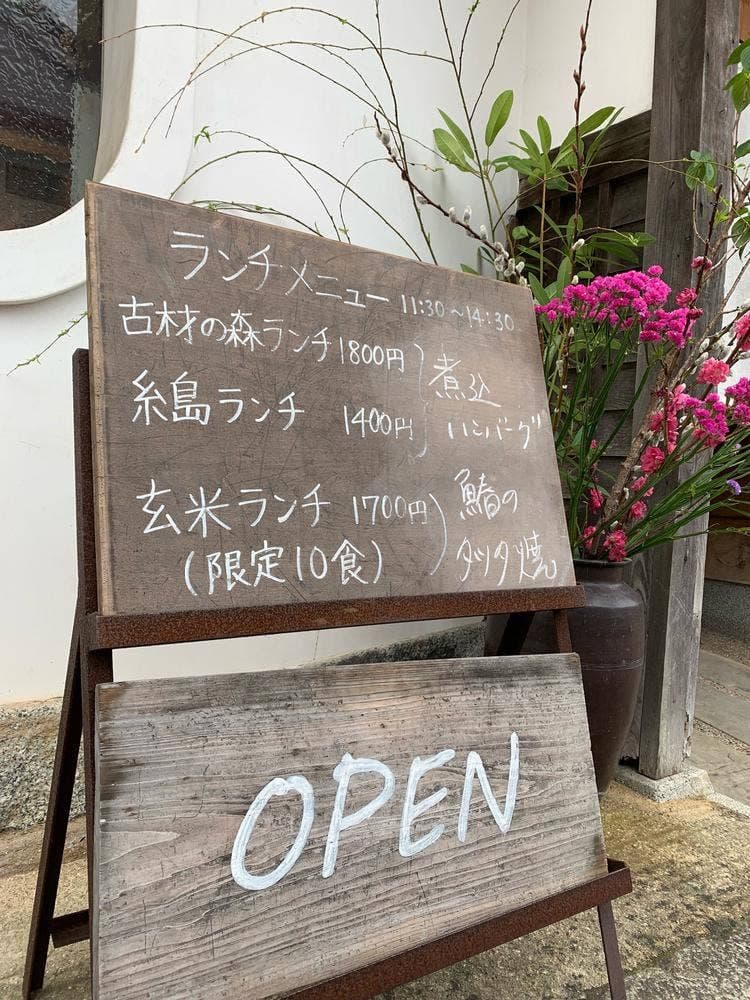 ランチメニュー 11:30～14:30
古材の森ランチ 1800円
糸島ランチ 1400円
煮込
ハンバーグ
玄米ランチ 1700円
(限定10食)
鰆の
タツタ焼
OPEN